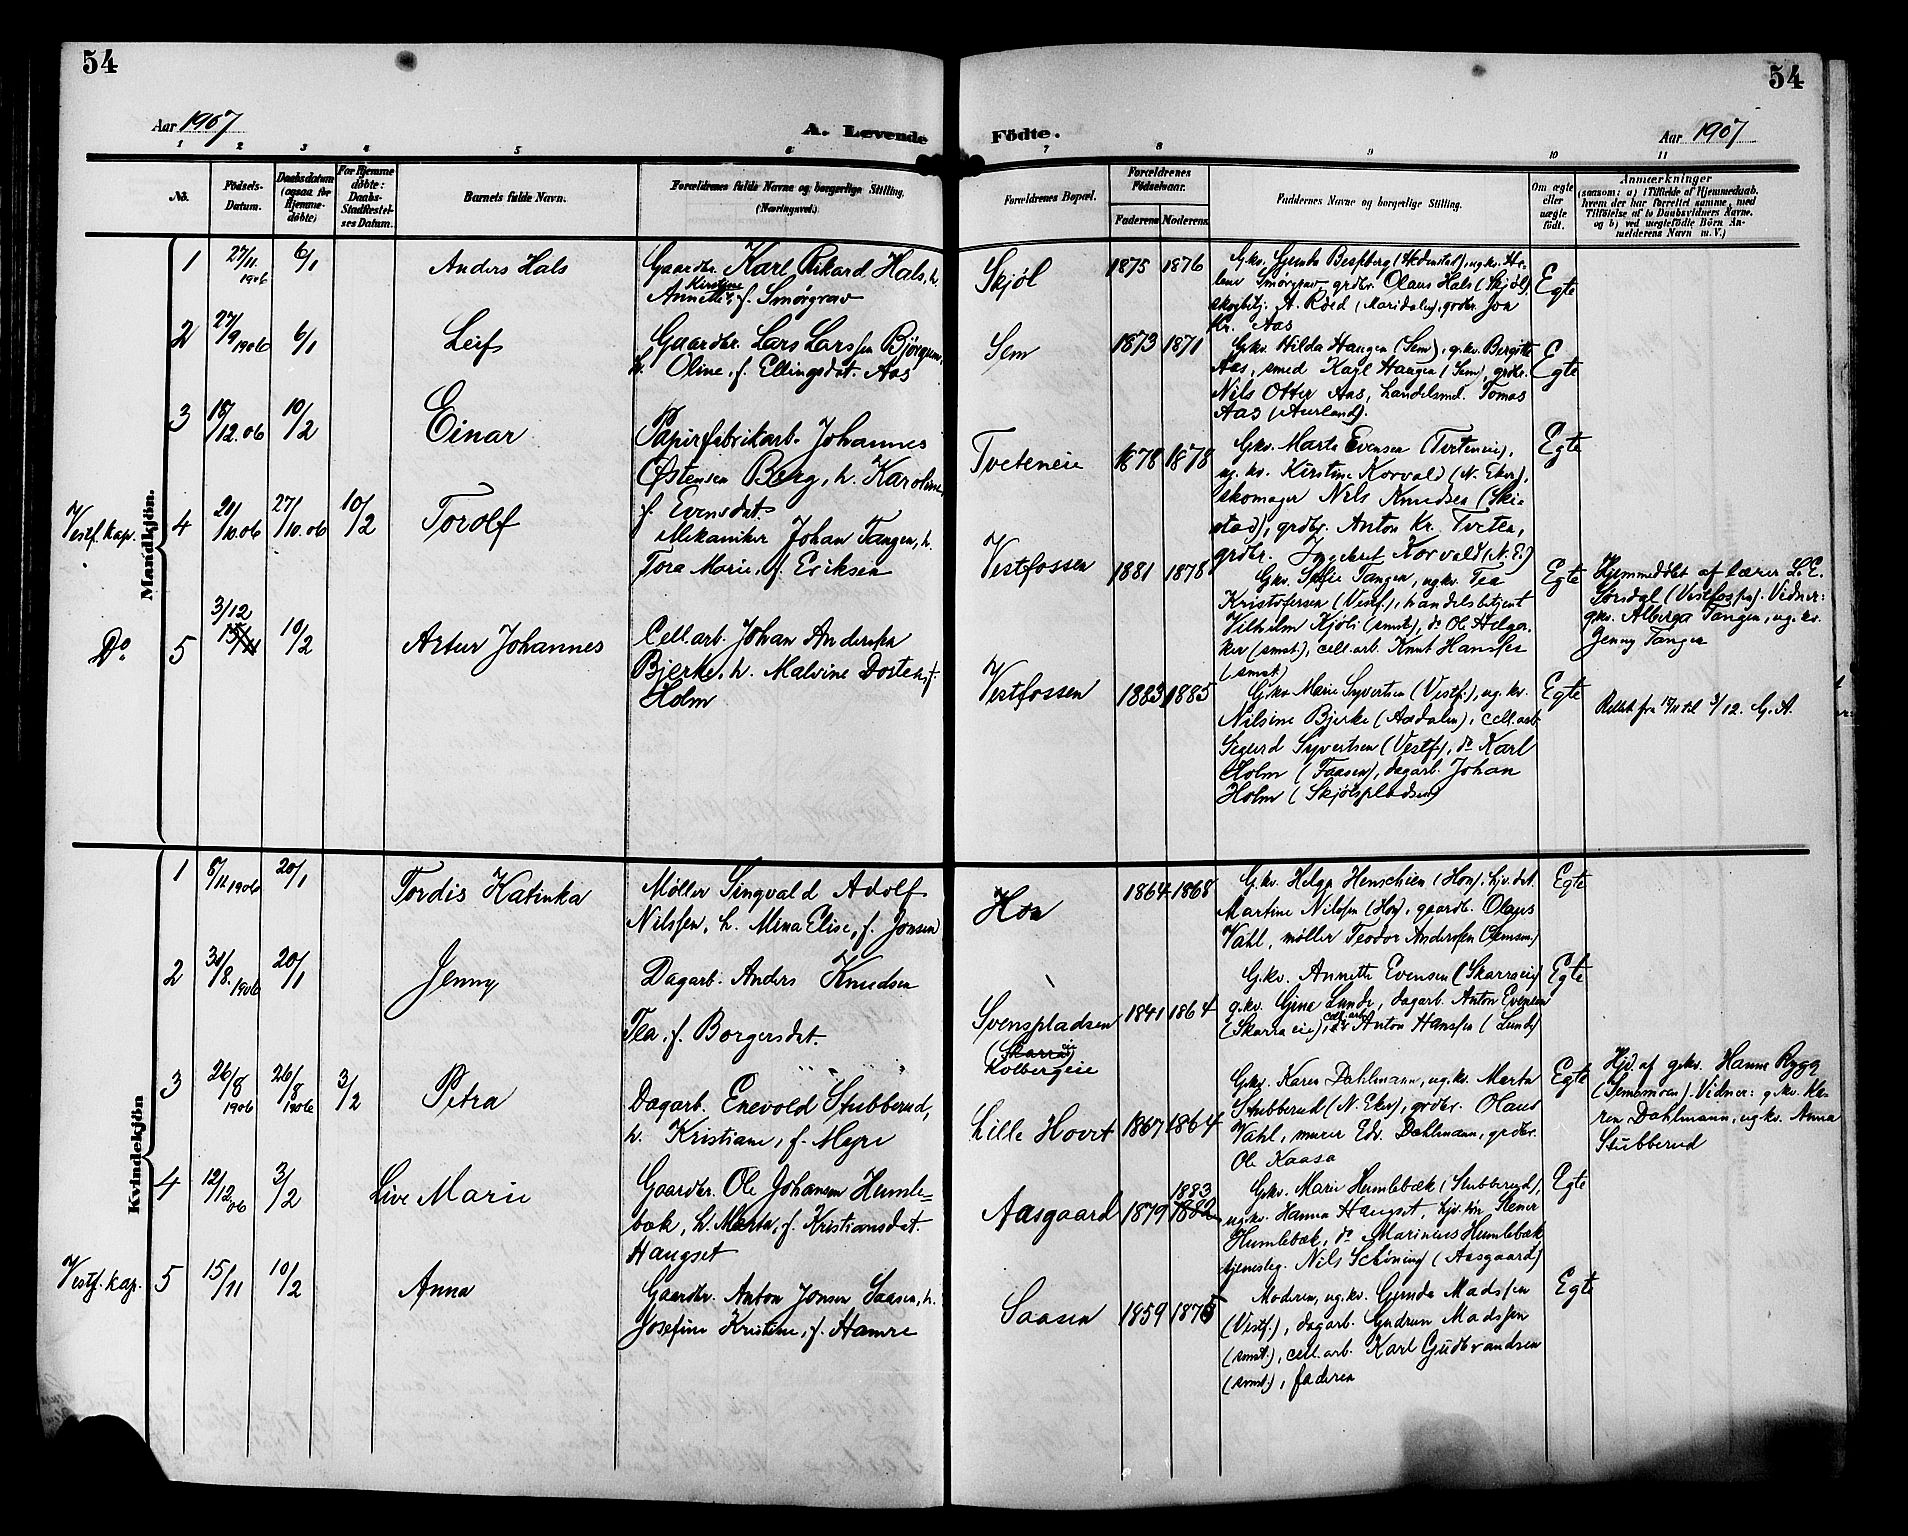 54
54
Aar 1907
A. Levende
Födte.
Aar 1907
1 2 3 4 5 6 7 8 9 10 11
No.
Födsels-Datum.
Daabsdatum (ogsaa for Hjemme-döbte)
For Hjemme döbte: Daabs-Stadfestel-ses Datum.
Barnets fulde Navn.
Forældrenes fulde Navne og borgerlige Stilling. (Næringsvei.)
Forældrenes Bopæl.
Forældrenes Födselsaar.
Faderens
Moderens
Faddernes Navne og borgerlige Stilling.
Om ægte eller uægte födt.
Anmærkninger
(saasom: a) i Tilfælde af Hjemmedaab, hvem der har forrettet samme, med Tilföielse af to Daabsvidners Navne, og b) ved uægtefödte Börn An-melderens Navn m. V.)
Mandkjön.
1 27/11 1906 6/1 Anders Hals
Gaardbr. Karl Rikard Hals, h.
Kirstine
Annette, f. Smörgrav
Skjøl 1875 1876
Olaus Hals (Skjøl)
A. Röed (Maridalen), grdbr. Jon
Kr. Aas
Egte
2 27/9 1906 6/1 Leif
Gaardbr. Lars Larssen Bjørgum,
h. Oline, f. Ellingsdat. Aas
Sem 1873 1871
Gkv. Hilda Haugen (Sem), gkv. Bergitte
Aas, smed Karl Haugen (Sem), grdbr.
Nils Otter Aas, handelsmd. Tomas
Aas (Aurland).
Egte
3 18/12.06 10/2 Einar
Papirfabrikarb. Johannes
Østensen Berg, h. Karoline,
f. Evensdat.
Tveteneie 1878 1878
Gkv. Marte Evensen (Tveteneie),
ug. kv. Kirstine Korvald (N. Eker),
skomager Nils Knudsen (Skie
stad), grdbr. Anton Kr. Tveten,
grdbr. Ingebret Korvald (N. E.)
Egte
Vestf. kap. 4 20/10.06 27/10.06 10/2 Torolf
Mekaniker Johan Tangen, h.
Tora Marie, f. Eriksen
Vestfossen 1881 1878
Gkv. Sofie Tangen, ugkv. Tea
Kristofersen (Vestf.), handelsbetjent
Vilhelm Kjöli (smst), do Ole Helga-
ker (smst), cell. arb. Knut Hanssen
(smst)
Egte
Hjemmedøbt af lærer L. E.
Sörsdal (Vestfossen). Vidner:
gkv. Alberga Tangen, ug. kv.
Jenny Tangen
Do 5 3/12 15/11 10/2 Artur Johannes
Cell. arb. Johan Anderssen
Bjerke, h. Malvine Dorten, f.
Holm
Vestfossen 1883 1885
Gkv. Marie Syvertsen (Vestf.), ug. kv.
Nilsine Bjerke (Aasdalen), cell. arb.
Sigurd Syvertsen (Vestf), do Karl
Holm (Faasen), dagarb. Johan
Holm (Skjølspladsen)
Egte
Rettet fra 15/11 til 3/12. G. A.
Kvindekjön
1 8/11 1906 20/1 Tordis Katinka
Møller Singvald Adolf
Nilssen, h. Mina Elise, f. Jonsen
Hon 1864 1868
G. kv. Helga Henschien (Hon), hjv. dat.
Martine Nilssen (Hon), gaardb. Olaus
Vahl, møller Teodor Anderssen
Egte
2 31/8. 1906 20/1 Jenny
Dagarb. Anders Knudsen
Tea, f. Borgersdat.
Svenspladsen
(Skarra eie)
Kolbergeie
1841 1864
G. kv. Annette Evensen (Skarraeie)
g. kv. Gina Lunde, dagarb. Anton Evensen
(Skarra eie), cell. arb. Anton Hanssen (Lunde)
Egte
3 26/8 1906 26/8 1906 3/2 Petra
Dagarb. Enevold Stubberud,
h. Kristiane, f. Myre
Lille Hovet 1867 1864
Gkv. Karen Dahlmann, ug. kv. Marta
Stubberud (N. Eker), grdbr. Olaus
Vahl, murer Edv. Dahlmann, grdbr.
Ole Kaasa
Egte
Hjd. af gkv. Hanna Rygg
(Semsmoen). Vidner: g. kv. Ka-
ren Dahlmann, ug. kv. Anna
Stubberud
4 12/12 06 3/2 Live Marie
Gaardbr. Ole Johansen Humle=
bæk, h. Marta, f. Kristiansdat.
Haugset
Aasgaard 1879 1883 1882
Gkv. Marie Humlebæk (Stubberud),
ugkv. Hanna Haugset, hjv. sön Stener
Humlebæk, do Marinius Humlebæk
tjenestg. Nils Schöning (Aasgaard)
Egte
Vestf. kap. 5 15/11 10/2 Anna
Gaardbr. Anton Jonsen Saasen, h.
Josefine Kristine, f. Hamre
Saasen 1859 1875
Moderen, ug. kv. Gunda Madssen
(Vestf.), dagarb. Gudrun Madssen
(smst.), cell. arb. Karl Gudbrandsen
(smst.), faderen
Egte